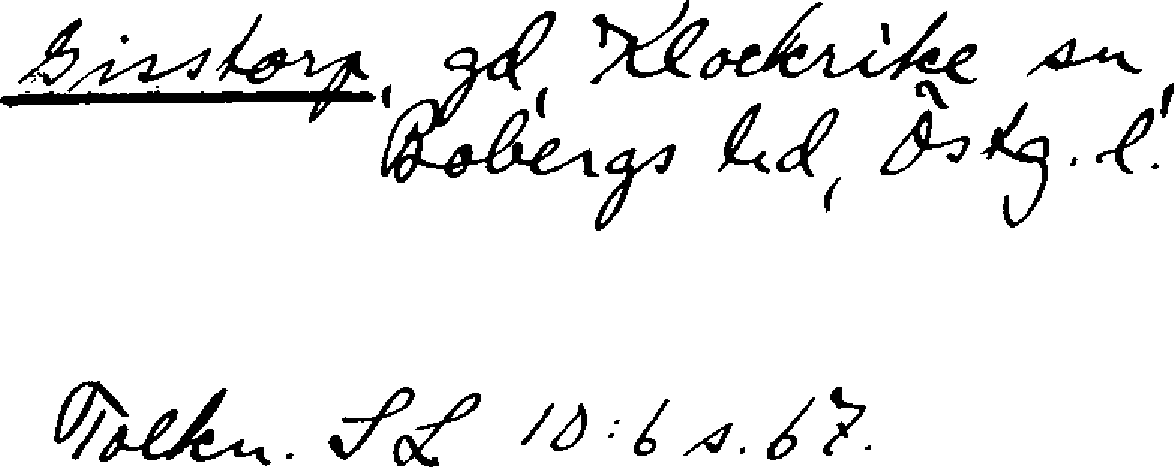 Gisstorp, gd, Klockrike sn,
Bobergs hd, Östg. l.
Tolkn. SL 10:6 s. 67.